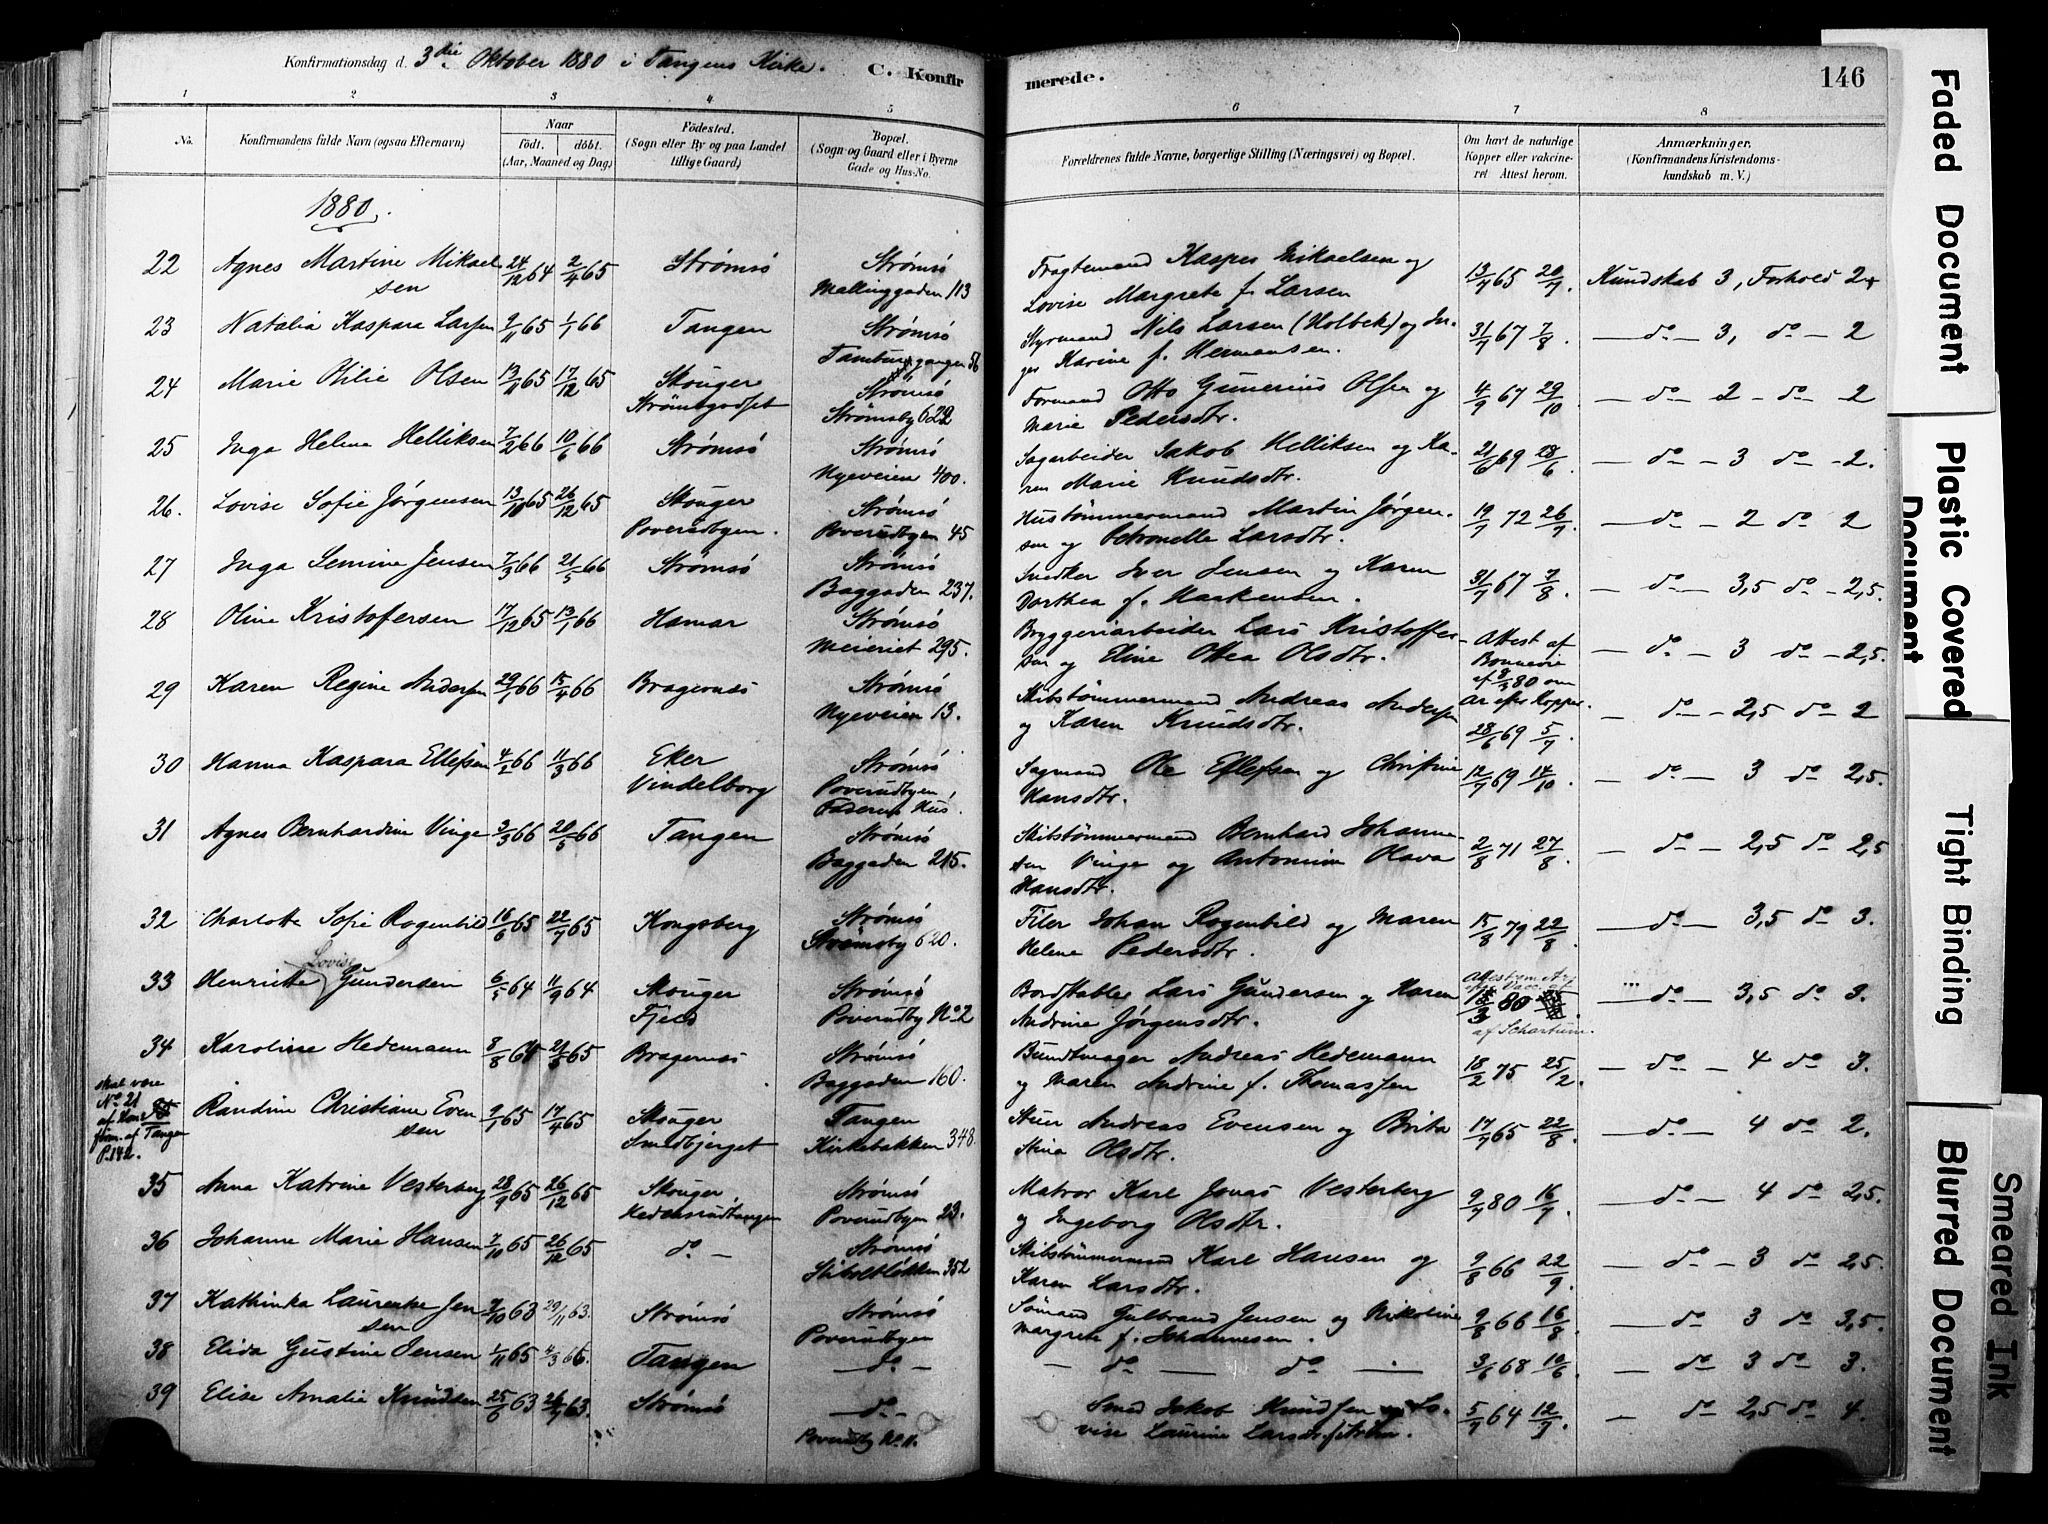 Konfirmationsdag d. 3die Oktober 1880 i Tangens Kirke. C. Konfir
merede. 146
1 2 3 4 5 6 7 8
No. Konfirmandens fulde Navn (ogsaa Efternavn) Naar født. døbt. (Aar, Maaned og Dag) Fødested. (Sogn eller By og paa Landet tillige Gaard) Bopæl. (Sogn og Gaard eller i Byerne Gade og Hus-No. Forældrenes fulde Navne, borgerlige Stilling (Næringsvei) og Bopæl. Om havt de naturlige Kopper eller vakcineret Attest herom. Anmærkninger. (Konfirmandens Kristendomskundskab m. V.)
1880.
22 Agnes Martine Mikaelsen 24/12 64 2/4 65 Strømsø Strømsø Mallinggaden 113 Fragtemand Kasper Mikaelsen og Lovise Margrete f. Larsen 13/7 65 20/7. Kundskab 3, Forhold 2
23 Natalia Kaspara Larsen 9/11 65 1/1 66 Tangen Strømsø gangen 56 Styrmand Nils Larsen (Holbek) og Inger Karine f. Hermansen. 31/7 67 7/8 — do — 3, do — 2
24 Marie Otilie Olsen 13/11 65 17/12 65 Skouger Strømsgodset Strømsø Strømsby 622 Formand Otto Gunerius Olsen og Marie Pedersdtr. 4/9 67 29/10 — do — 2 — do — 2
25 Inga Helene Helliksen 7/2 66 10/6 66 Strømsø Strømsø Nyeveien 400. Sagarbeider Jakob Helliksen og Karen Marie Knudsdtr. 21/6 69 28/6 — do — 3 do — 2.
26. Lovise Sofie Jørgensen 13/10 65 26/12 65 Skouger Poverudbyen. Strømsø Poverudbyen 45 Hustømmermand Martin Jørgensen og Petronelle Larsdtr. 19/7 72 26/7. — do — 2 do 2
27 Inga Semine Jensen 7/3 66 21/5 66 Strømsø Strømsø Baggaden 237. Snedker Iver Jensen og Karen Dorthea f. Haakensen. 31/7 67 7/8. — do — 3,5 do — 2,5.
28 Oline Kristofersen 17/12 65 13/1 66 Hamar Strømsø Meieriet 295. Bryggeriarbeider Lars Kristoffersen og Eline Ottea Olsdtr. Attest af Bonnevie af 8/9 80 om Ar efter Kopper. — do — 3 do — 2,5.
29 Karen Regine Andersen 29/1 66 15/4 66 Bragernæs Strømsø Nyeveien 13. Skibstømmermand Andreas Andersen og Karen Knudsdtr. 28/6 69 5/7. — do — 2,5 do 2
30 Hanna Kaspara Ellefsen 4/2 66 11/3 66 Eker Vindelborg Strømsø Poverudbyen Hus. Sagmand Ole Ellefsen og Christine Hansdtr. 12/7 69 14/10 — do — 3 do 2,5.
31 Agnes Bernhardine Vinge 3/3 66 20/5 66 Tangen Strømsø Baggaden 215. Skibstømmermand Bernhard Johannesen Vinge og Antomine Olava Hansdtr. 2/8 71 27/8. — do — 2,5 do 2,5
32 Charlotte Sofie Rogenbild 16/6 65 22/7 65 Kongsberg Strømsø Strømsby 620. Filer Johan Rogenbild og Maren Helene Pedersdtr. 15/8 79 22/8. — do — 3,5 do 3.
33 Henriette Lovise Gundersen 6/5 64 11/9 64 Skouger Fjeld Strømsø Poverudby No 2 Bordstabler Lars Gundersen og Karen Andrine Jørgensdtr. Attest om Ar 80 af Schartum. — do — 3,5 do 3.
34 Karoline Hedemann 8/8 64 21/5 65 Bragernæs Strømsø Baggaden 160. Bundtmager Andreas Hedemann og Maren Andrine f. Thomassen 18/2 75 25/2. — do — 4 do 3.
skal være No 21 af Konfirm. af Tangen P. 142. Randine Christiane Evensen 9/1 65 17/4 65 Skouger Smedbjerget Tangen Kirkebakken 348. Stuer Andreas Evensen og Brita Stina Olsdtr. 17/7 65 22/8. — do — 4 do 2.
35 Anna Katrine Vesterberg 28/9 65 26/12 65 Skouger Strømsø Poverudbyen 23. Matros Karl Jonas Vesterberg og Ingeborg Olsdtr. 9/7 80 16/7. — do — 4 do 2,5.
36 Johanne Marie Hansen 7/10 65 26/12 65 do — Strømsø Stiboltløkken 352 Skibstømmermand Karl Hansen og Karen Larsdtr. 9/8 66 22/9. — do — 3 do 2,5.
37 Kathinka Laurentse Jensen 7/10 63 29/11 63. Strømsø Strømsø Poverudbyen Sømand Gulbrand Jensen og Nikoline Margrete f. Johannesen. 9/8 66 16/8. — do 3 do 3,5.
38 Elida Gustine Jensen 1/11 65 4/3 66. Tangen — do — — do — do — 3/6 68 10/6. — do 3 do 3.
39 Elise Amalie Knudsen 25/6 63 26/7 63. Strømsø — do — Poverudby No 11. Smed Jakob Knudsen og Lovise Laurine Larsdtr. 5/7 64 12/7. — do 2,5 do 4.
Faded Document
Plastic Covered Document
Tight Binding
Blurred Document
Smeared Ink